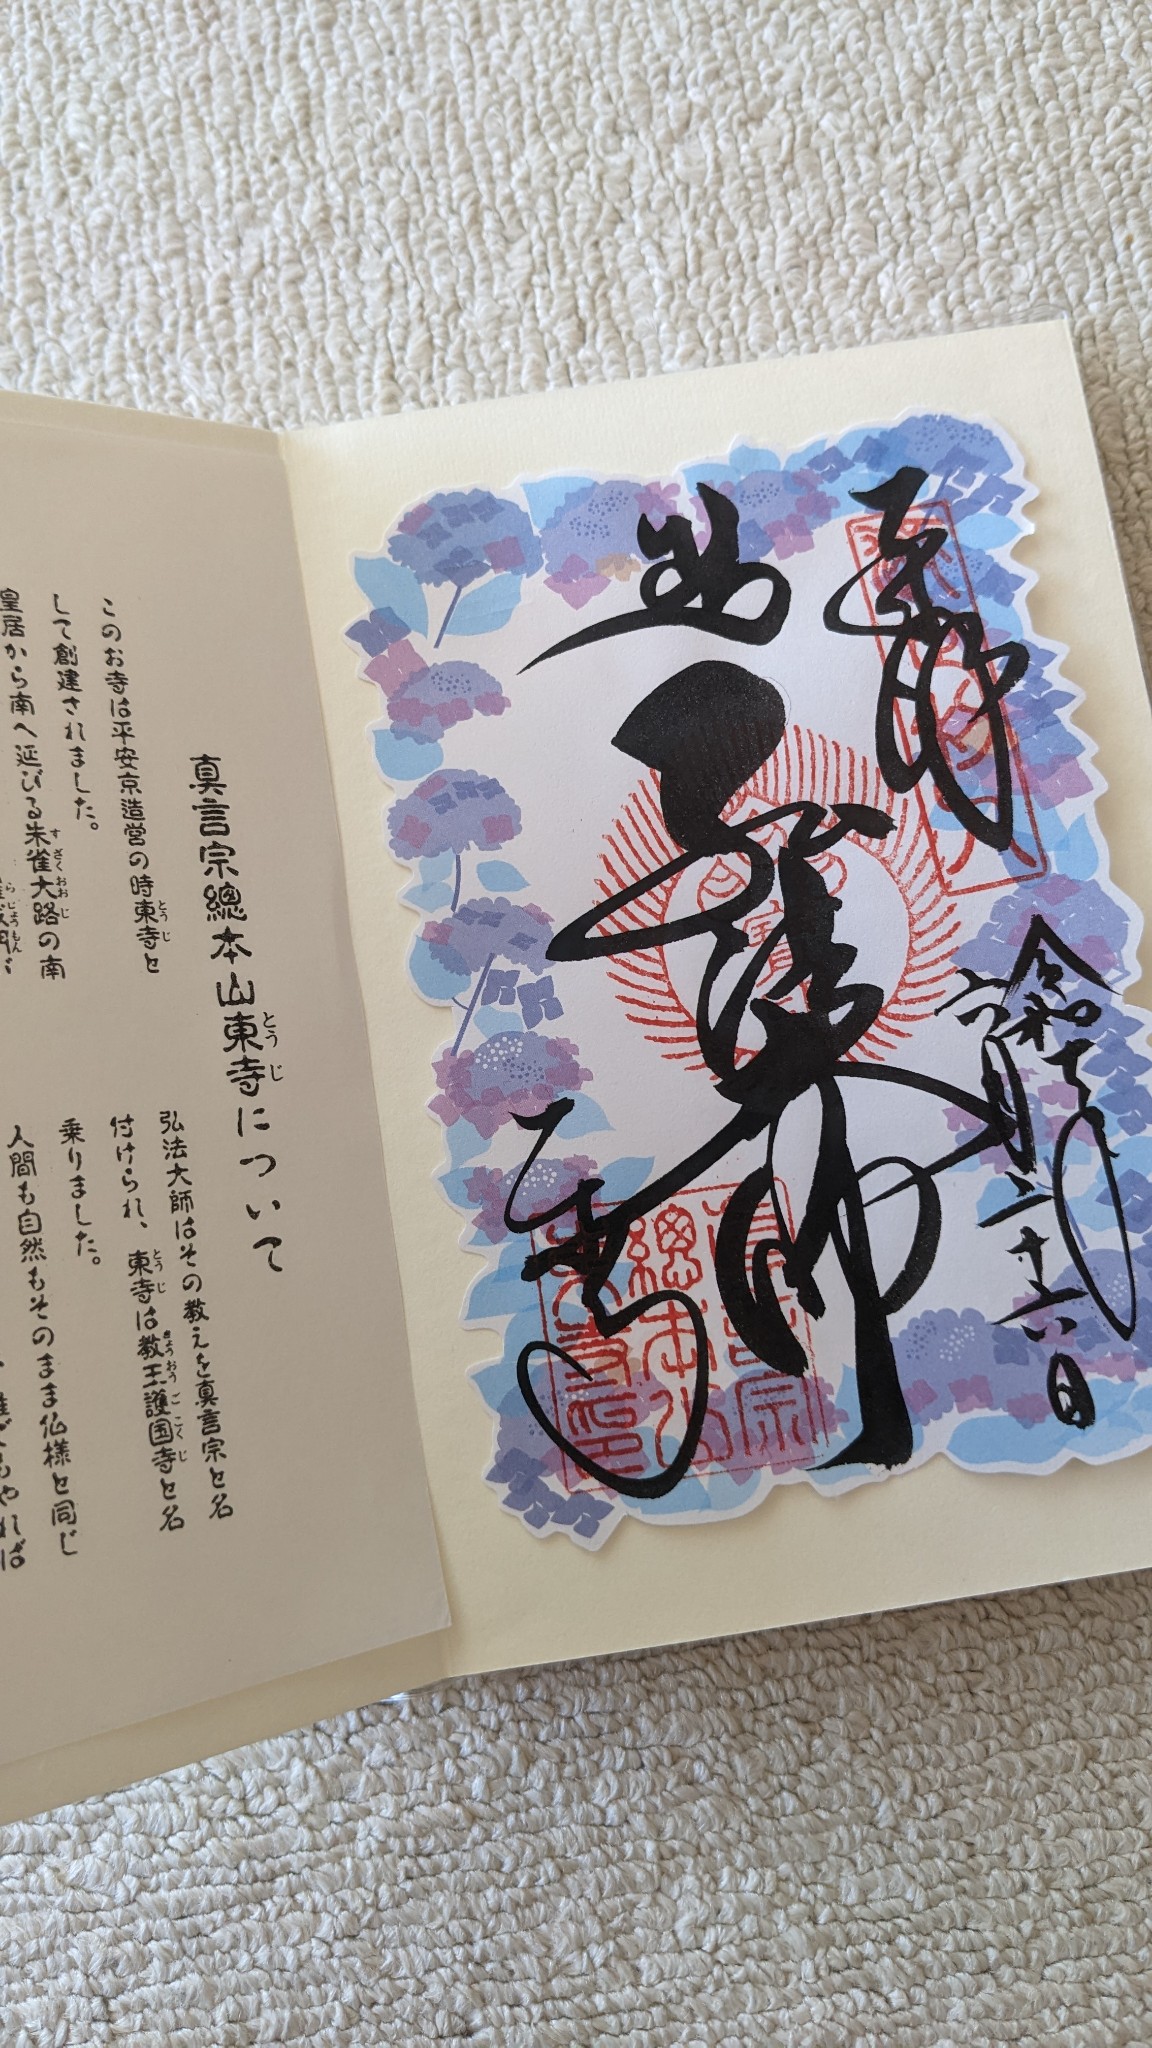 奉拝
令和
六月二十六日
大師
東寺
真言宗
總本山
東寺印
真言宗總本山東寺について
このお寺は平安京造営の時東寺と
して創建されました。
皇居から南へ延びる朱雀大路の南
弘法大師はその教えを真言宗と名
付けられ、東寺は教王護国寺と名
乗りました。
人間も自然もそのまま仏様と同じ
もやれば